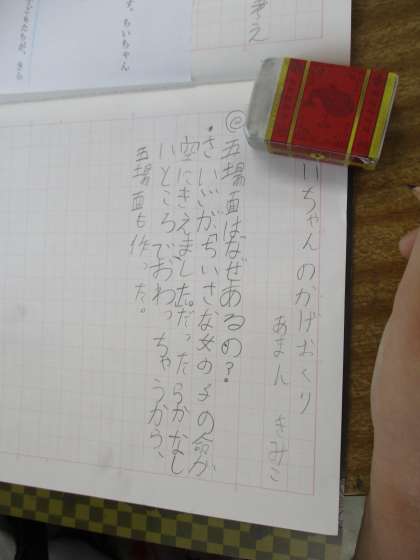 いちゃんのかげおくり
あまん きみこ
㋔五場面はなぜあるの?
・さいごが、「ちいさな女の子の命が
空にきえました。」だったらかなし
いところでおわっちゃうから、
五場面も作った。
す。ちいちゃん
どもたちが、きら